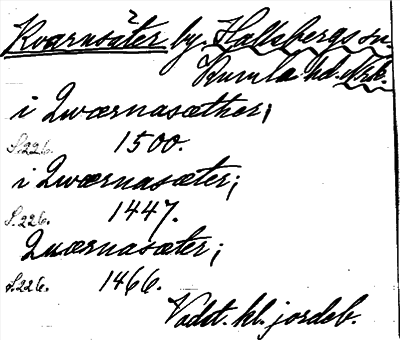 Kvarnsäter by. Hallebergs sn.
Kumla hd. Nrk.
i Qwærnasæther;
S.226. 1500.
i Qwærnasæter;
S.226. 1447.
Quærnasæter;
S.226. 1466.
Vadst. kl. jordeb.